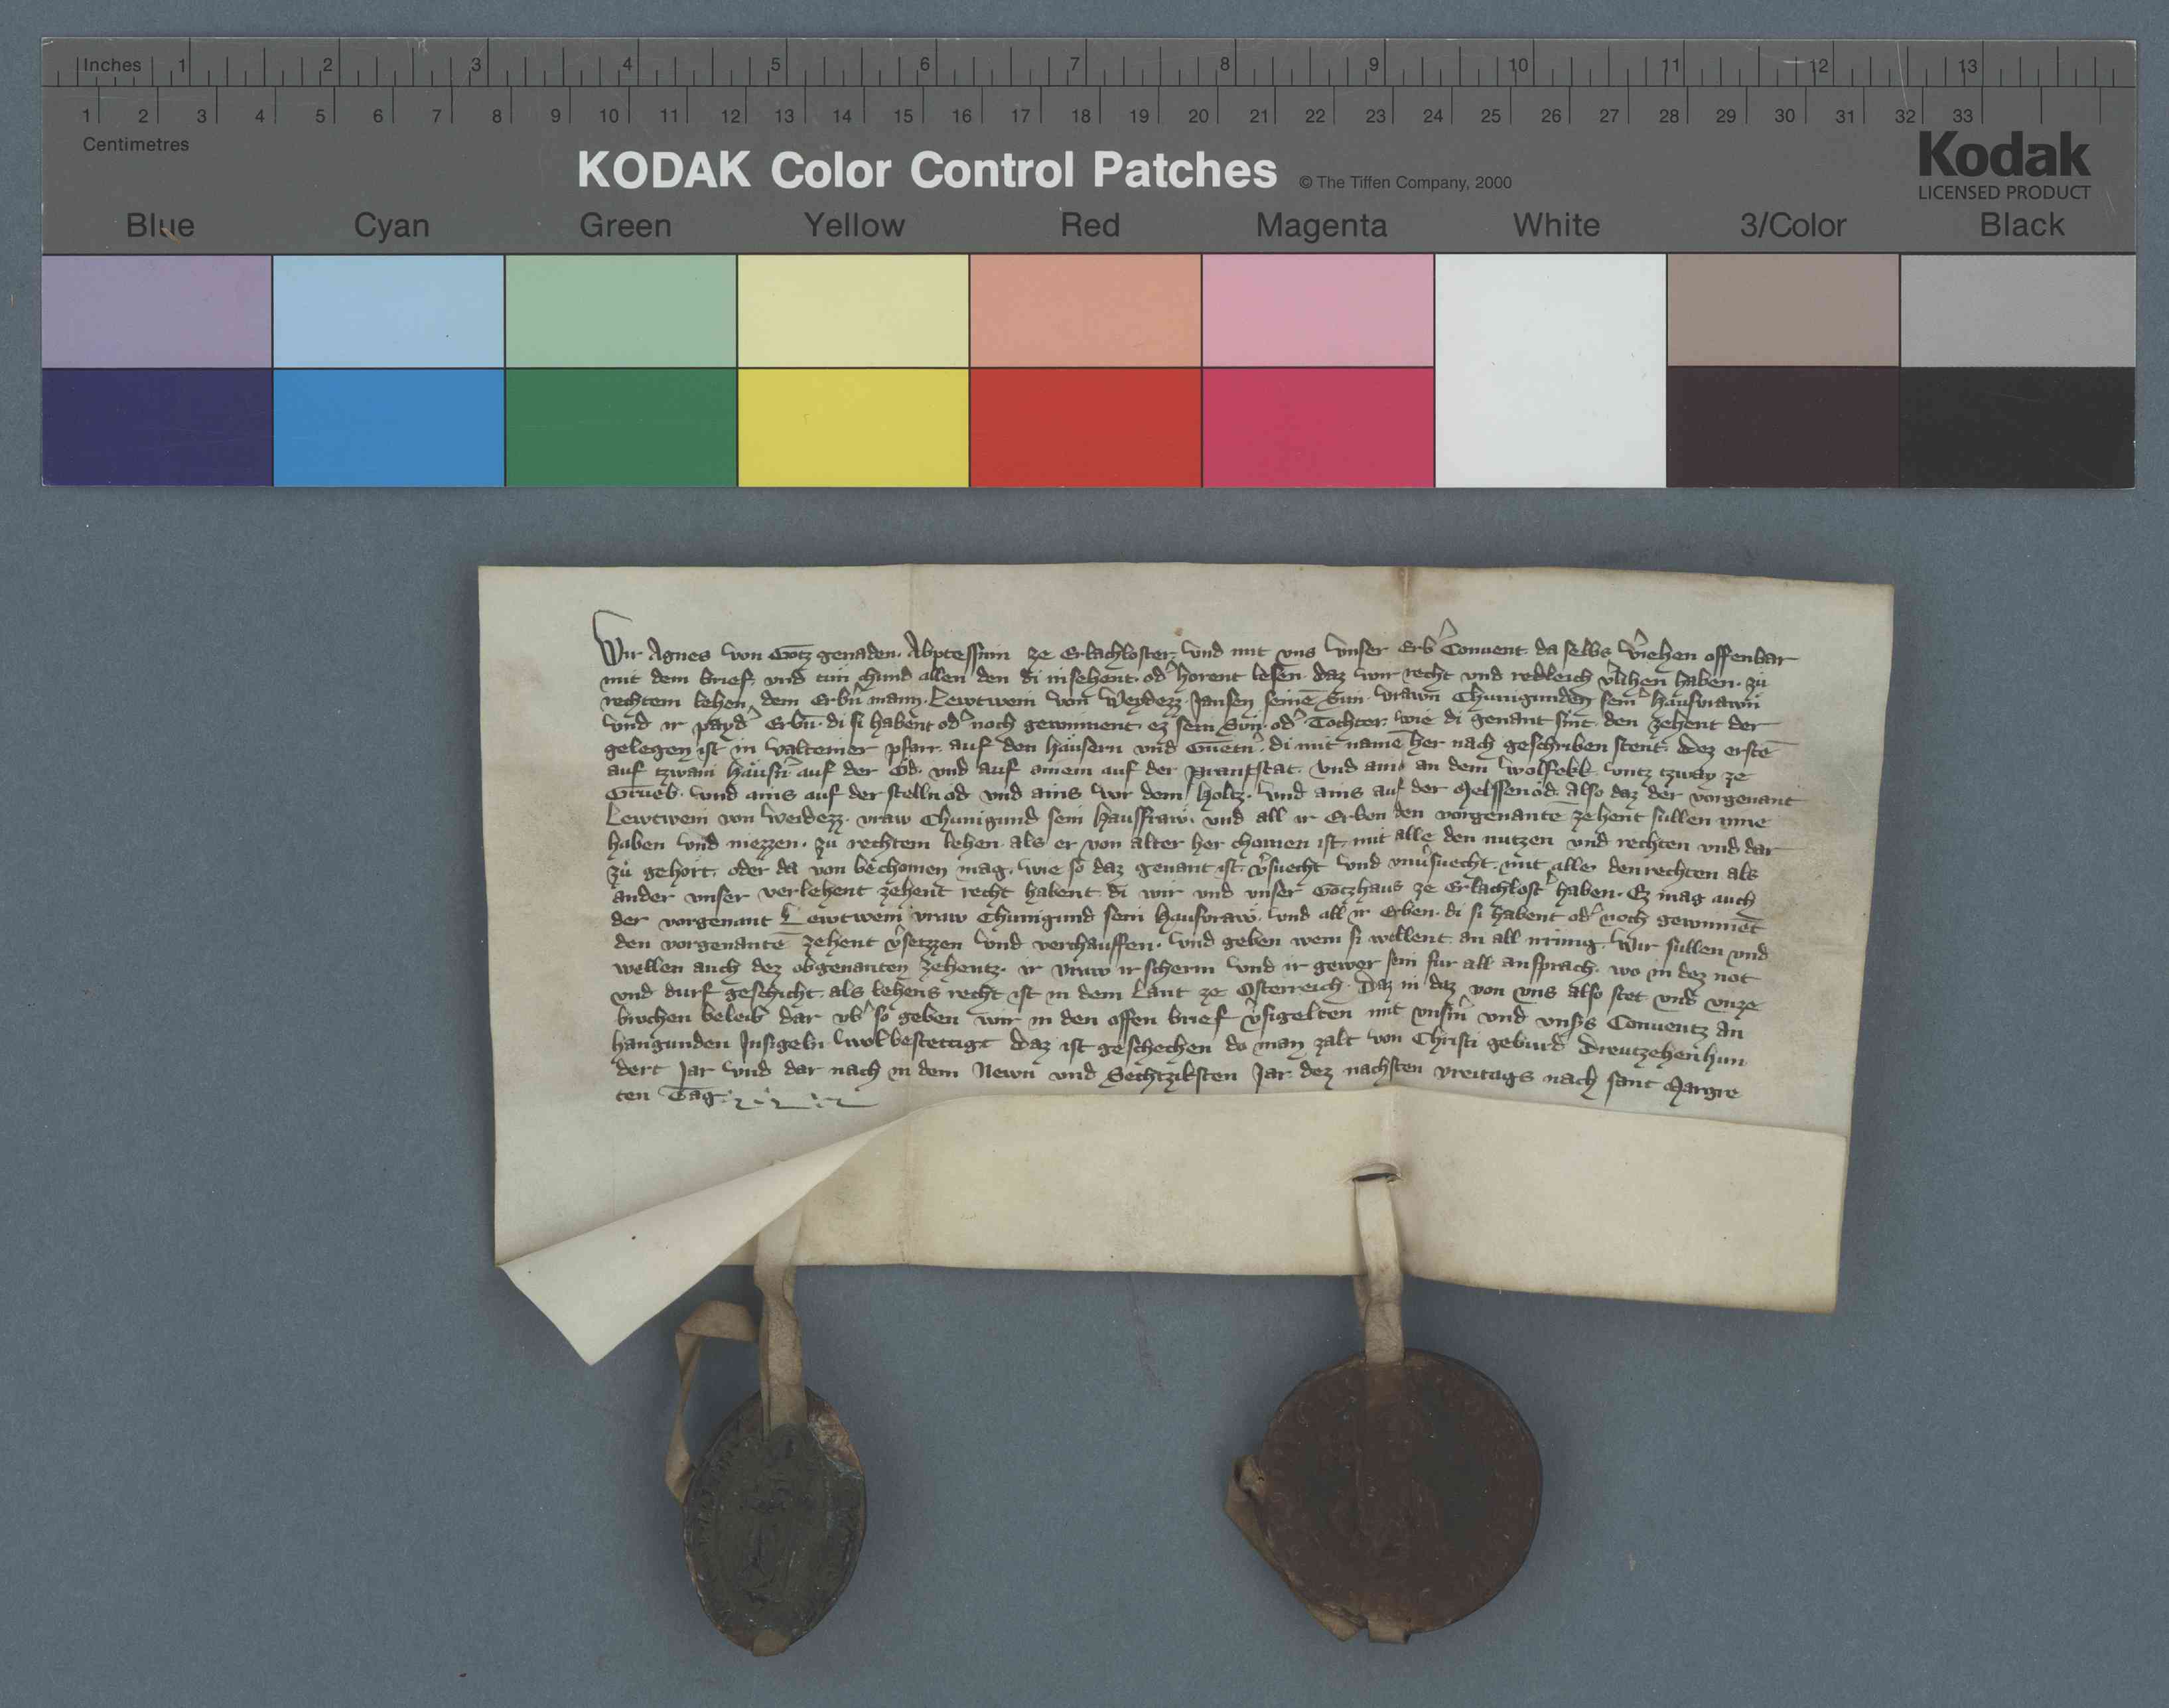 Inches 1 2 3 4 5 6 7 8 9 10 11 12 13
1 2 3 4 5 6 7 8 9 10 11 12 13 14 15 16 17 18 19 20 21 22 23 24 25 26 27 28 29 30 31 32 33
Centimetres
KODAK Color Control Patches © The Tiffen Company, 2000
Kodak
LICENSED PRODUCT
Blue Cyan Green Yellow Red Magenta White 3/Color Black
Wir Agnes von Gotz genaden. Abptessinn ze Erlachloster. und mit uns unser Erb Convent da selbs v̓iehen offenbar
mit dem brief. und tun chund allen den di in sehent. od̓ horent lesen. daz wir recht und redleich v̓lihen haben. zu
rechtem lehen dem Erbn̄ mann. Lewtwein von Weydezz. Jansen seinē Sun. vrawn Chunigunden sein̓ hausvrawn
und ir payd̓ Erbn̄. di si habent od̓ noch gewinnent. ez sein Sun. od̓ Tochter. wie di genant sint. den zehent der
gelegen ist in valteiner pfarr. auf den hausern und Guetn̓. di mit namē her nach geschriben stent. Dez erstē
auf tzwain hausn̓ auf der Od. und auf ainem auf der prantstat. und ains an dem wolfekk. untz tzway ze
Grueb. und ains auf der stelln od und ains vor dem holtz. und ains auf der Melssenod. also daz der vorgenant
Lewtwein von Weidezz. vraw Chunigund sein hausfraw. und all ir Erben den vorgenantē zehent sullen inne
haben und niezzen. zu rechtem lehen. als er von alter her chomen ist. mit alle den nutzen und rechten und dar
zu gehort. oder da von bechomen mag. wie so daz genant ist. v̓suecht und unv̓suecht. mit alle den rechten als
ander unser verlehent zehent recht habent. di wir und unser Gotzhaus ze Erlachlost̓ haben. Ez mag auch
der vorgenant Lewtwein vraw Chunigund sein hausvraw. und all ir Erben. di si habent od̓ noch gewinnēt
den vorgenantē zehent v̓setzzen und verchauffen. und geben wem si wellent. an all irrung. Wir sullen und
wellen auch dez obgenanten zehentz. ir vraw ir scherm und ir gewer sein fur all ansprach. wo in dez not
und durf geschicht. als lehens recht ist in dem Lant ze Osterreich. Daz in daz von uns also stet und unze
brochen beleib dar ub̓ so geben wir in den offen brief v̓sigelten mit unsn̓ und unsß Conventz an
hangunden Insigeln. wol bestettigt. Daz ist geschechen do man zalt von Christi geburd Dreutzehen hun
dert Jar und dar nach in dem Newn und Sechtzikisten Jar. dez nachsten vreitags nach sant Margre
ten Tag.